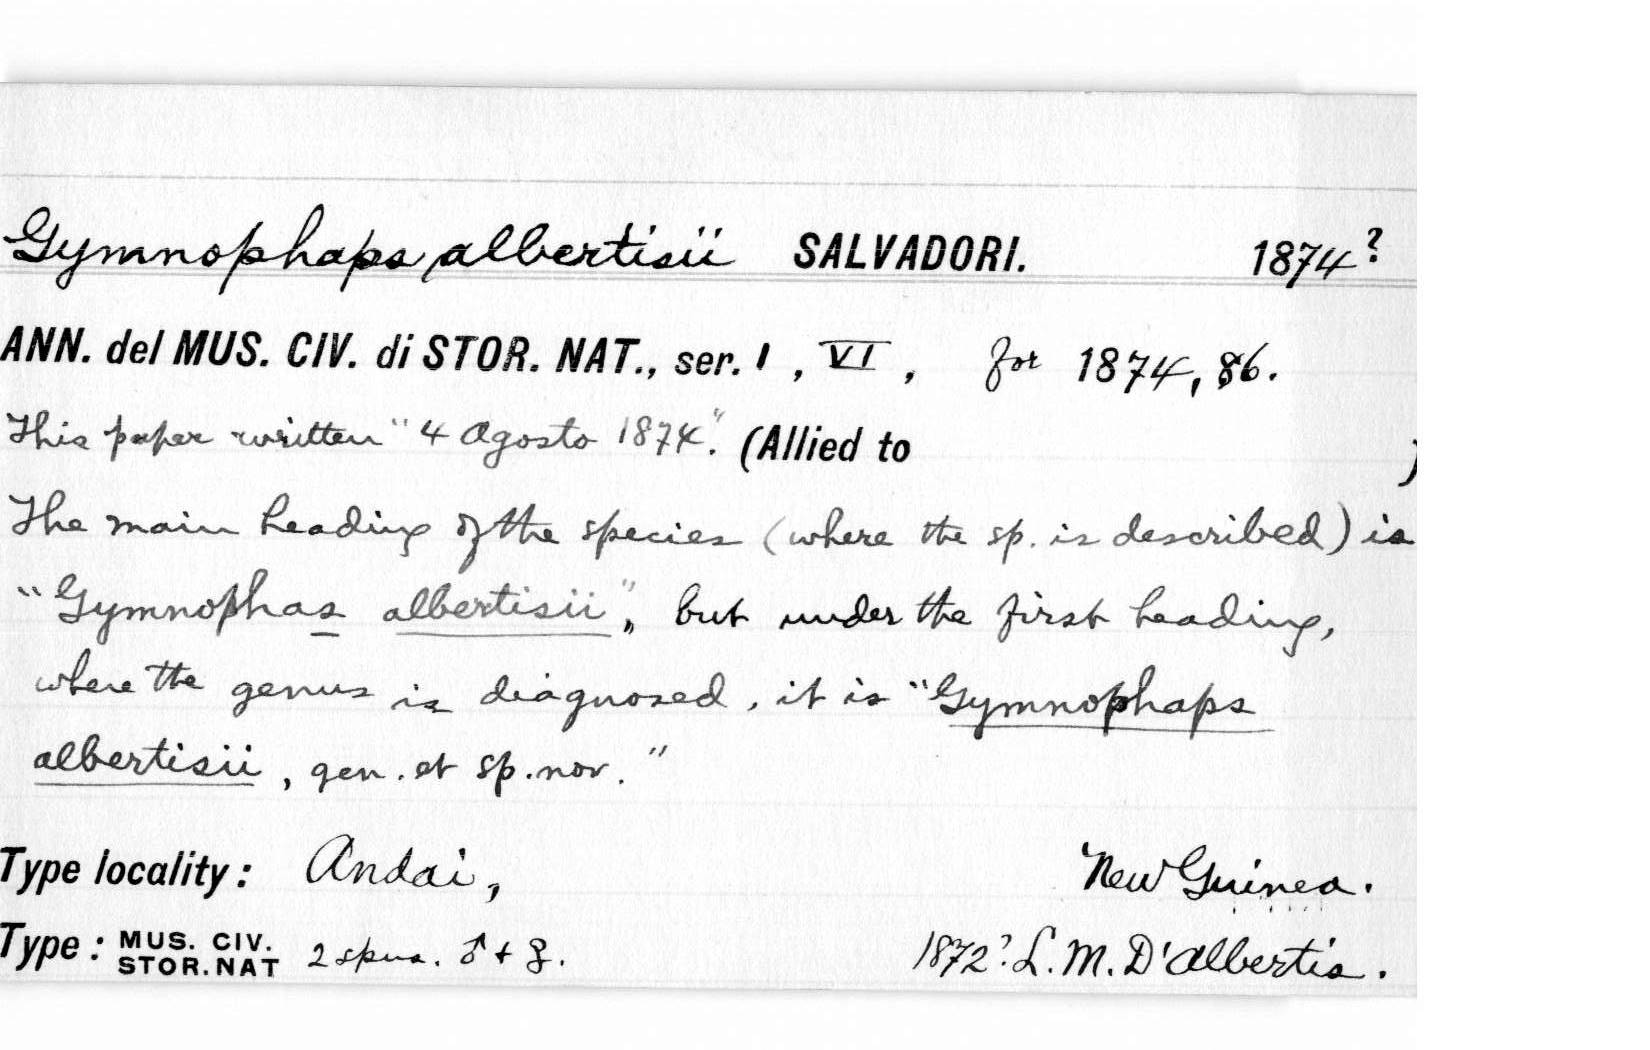 Gymnophaps albertisii SALVADORI. 1874?
ANN. del MUS. CIV. di STOR. NAT., ser. 1, VI, for 1874, 86.
This paper written "4 Agosto 1874". (Allied to )
The main heading of the species (where the sp. is described) is
"Gymnophas albertisii", but under the first heading,
where the genus is diagnosed, it is "Gymnophaps
albertisii, gen. et sp. nov."
Type locality: Andai, New Guinea.
Type: MUS. CIV. STOR. NAT 2 spns. ♂ + ♀. 1872? L. M. D'Albertis.